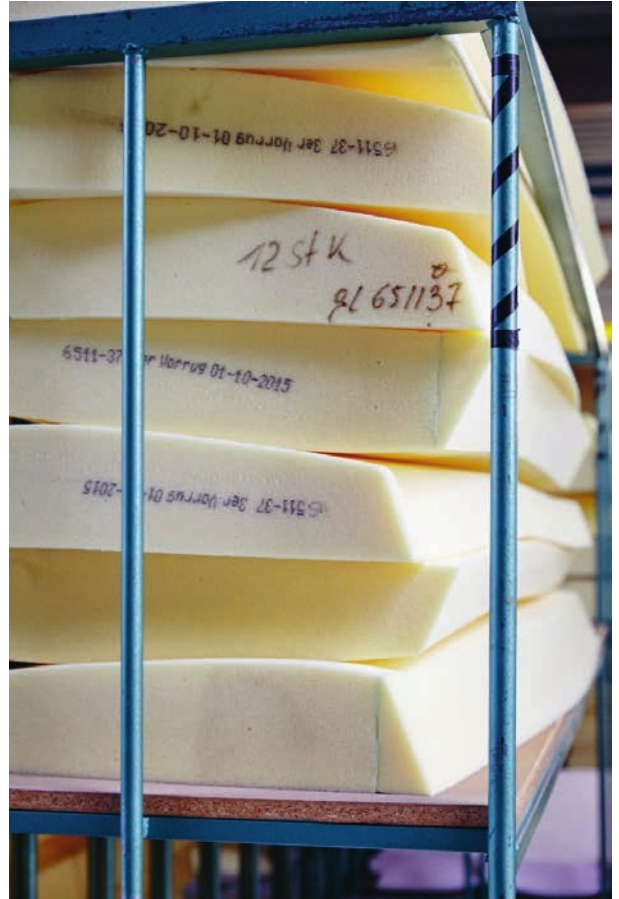 6511-37 3er Vorrug 01-10-20
12 Stk
gl 651137
6511-37 er Vorrug 01-10-2015
6511-37 3er Vorrug 01- -2015